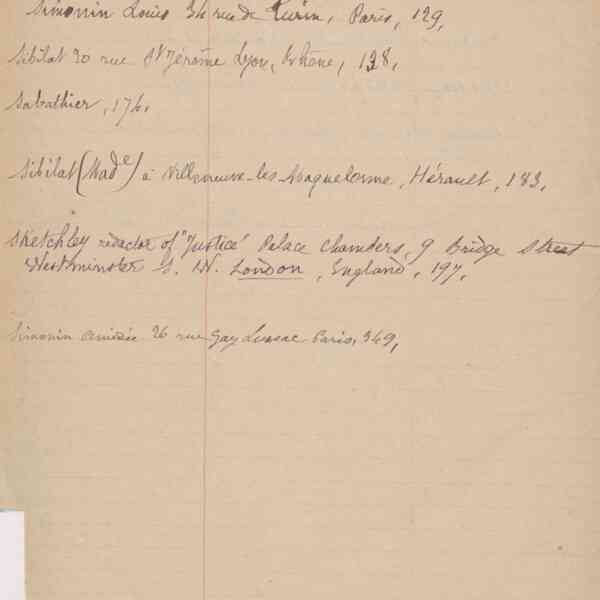 Simonin Louis 34 rue de Turin, Paris, 129,
Sibilat 20 rue St Jérôme Lyon, Rhône, 138,
Sabathier, 176,
Sibilat (Made) à Villeneuve-les-Maguelonne, Hérault, 183,
Sketchley redactor of "Justice" Palace Chambers, 9 Bridge Street
Westminster S. W. London, England, 197,
Simonin Amédée 26 rue Gay Lussac Paris, 349,